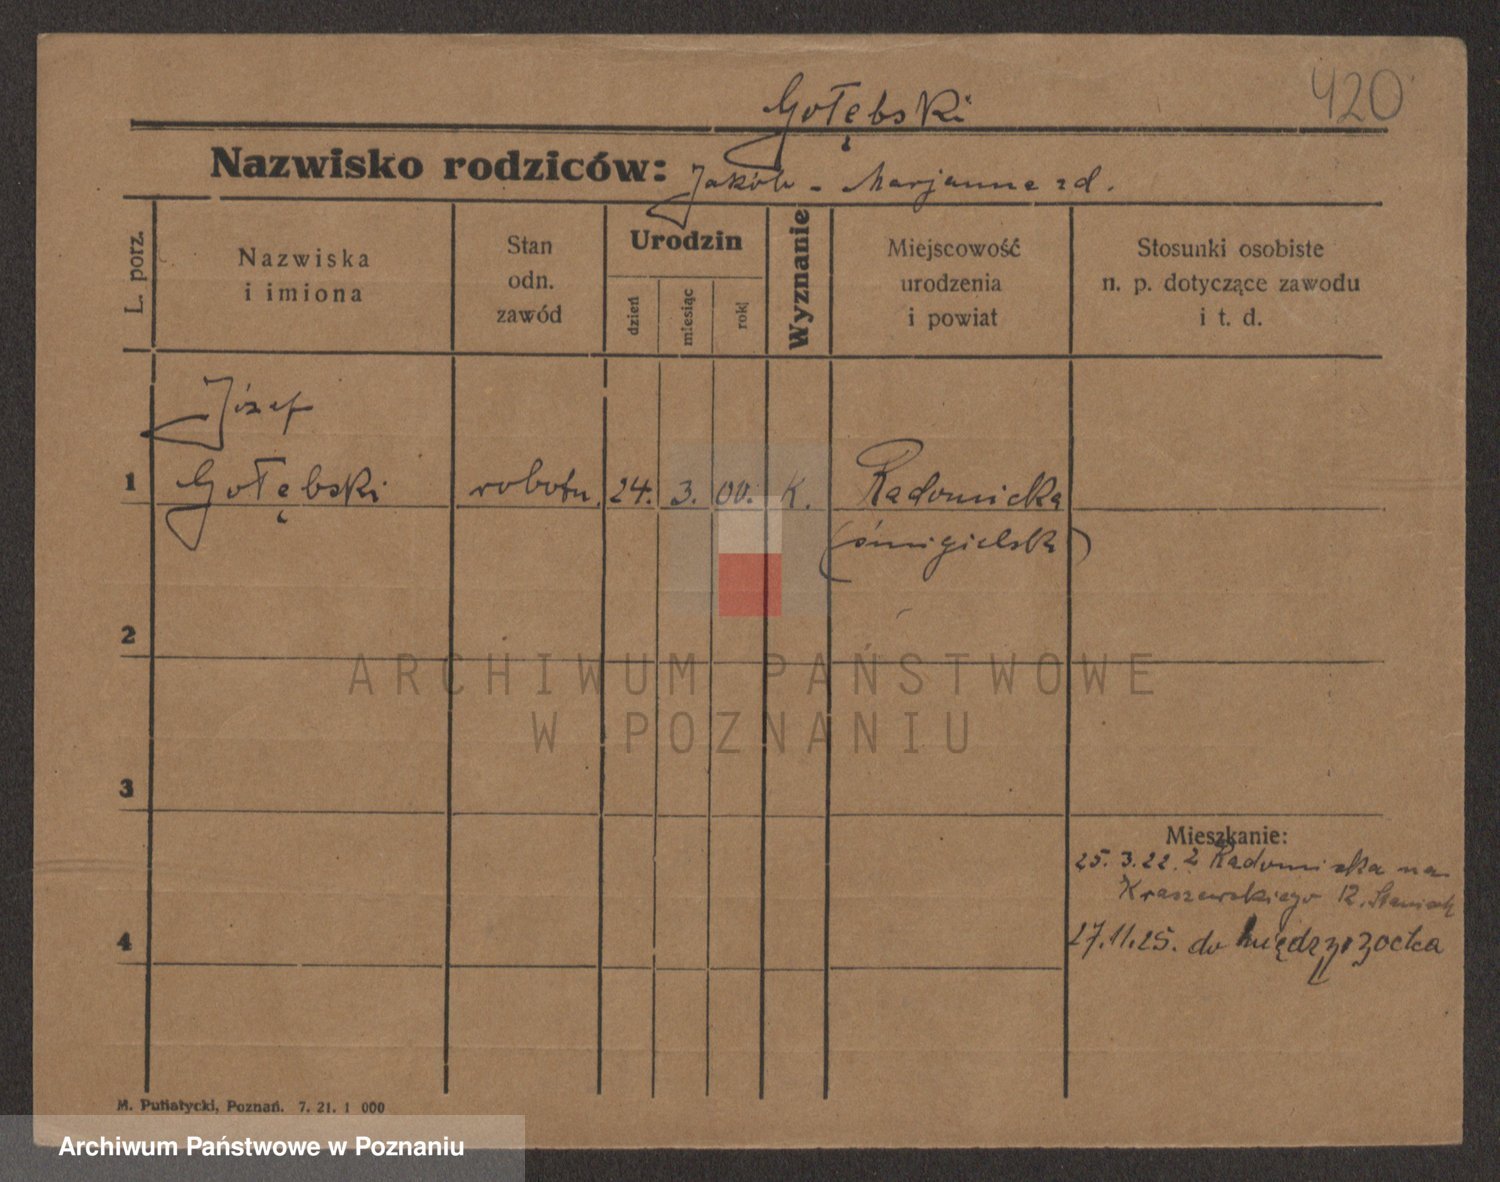 420
Gołębski
Nazwisko rodziców: Jakób - Marjanna zd.
L. porz.
Nazwiska
i imiona
Stan
odn.
zawód
Urodzin
dzień
miesiąc
rok
Wyznanie
Miejscowość
urodzenia
i powiat
Stosunki osobiste
n. p. dotyczące zawodu
i t. d.
Józef
1 Gołębski robotn. 24. 3. 00. K. Radomicka
(śmigielski)
2
ARCHIWUM PAŃSTWOWE
W POZNANIU
3
Mieszkanie:
25. 3. 22. z Radomicka na
Kraszewskiego 12.
4
27. 11. 25. do
M. Putiatycki, Poznań. 7. 21. 1 000
Archiwum Państwowe w Poznaniu